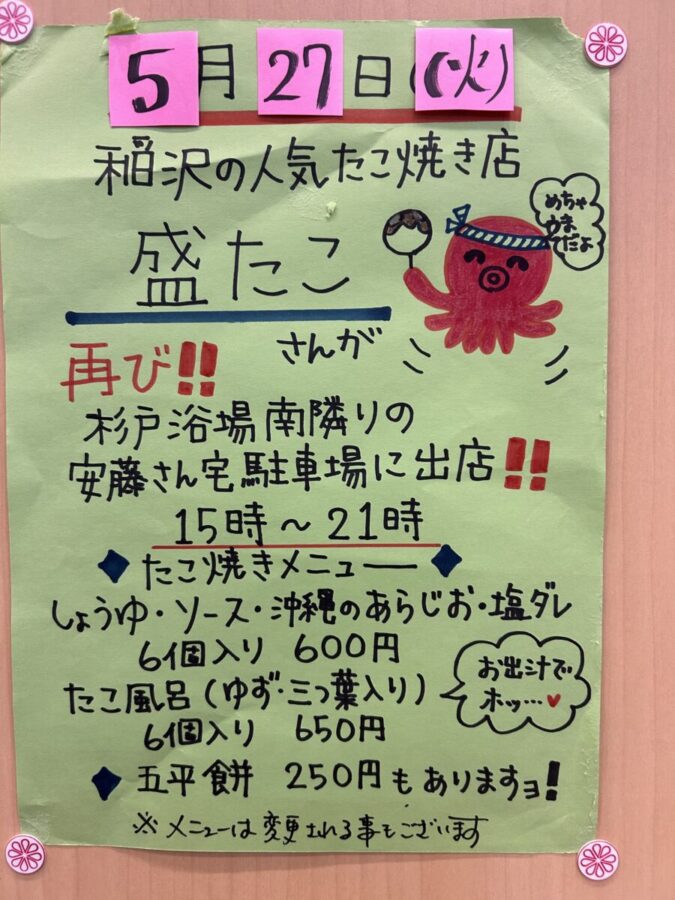 5月27日(火)
稲沢の人気たこ焼き店
めちゃ
うま
だよ
盛たこ
さんが
再び!!
杉戸浴場南隣りの
安藤さん宅駐車場に出店!!
15時～21時
◆たこ焼きメニュー◆
しょうゆ・ソース・沖縄のあらじお・塩ダレ
6個入り 600円
たこ風呂(ゆず・三つ葉入り)
6個入り 650円
お出汁で
ホッ…♥
◆五平餅 250円もありますョ!
※メニューは変更される事もございます